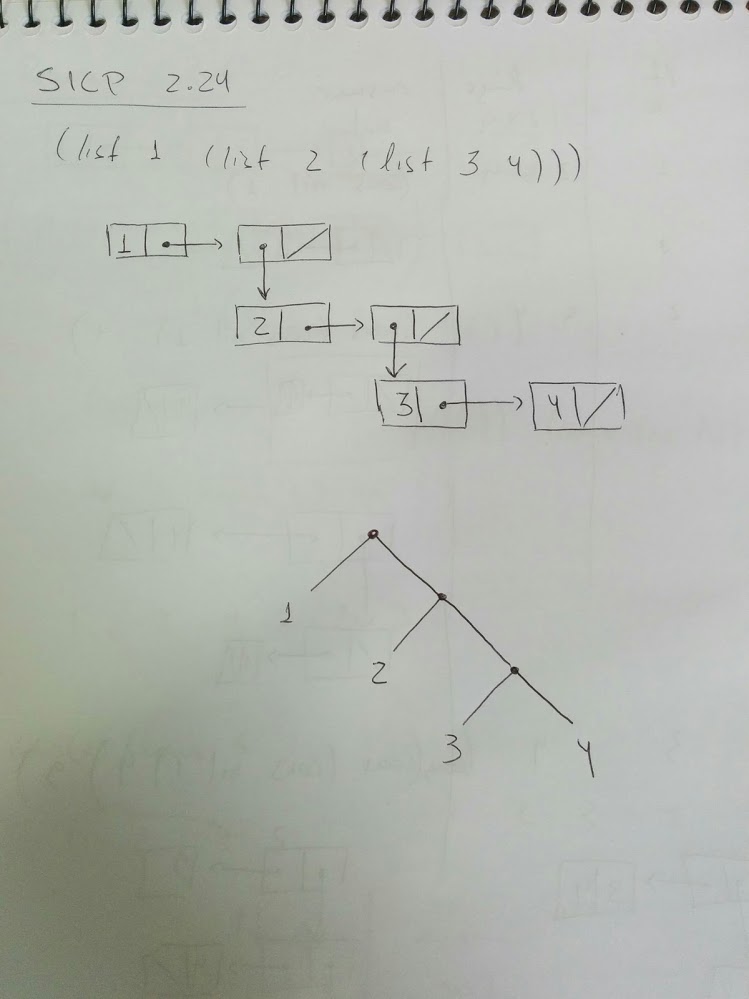 SICP 2.24
(list 1 (list 2 (list 3 4)))
1
2
3 4
1
2
3 4